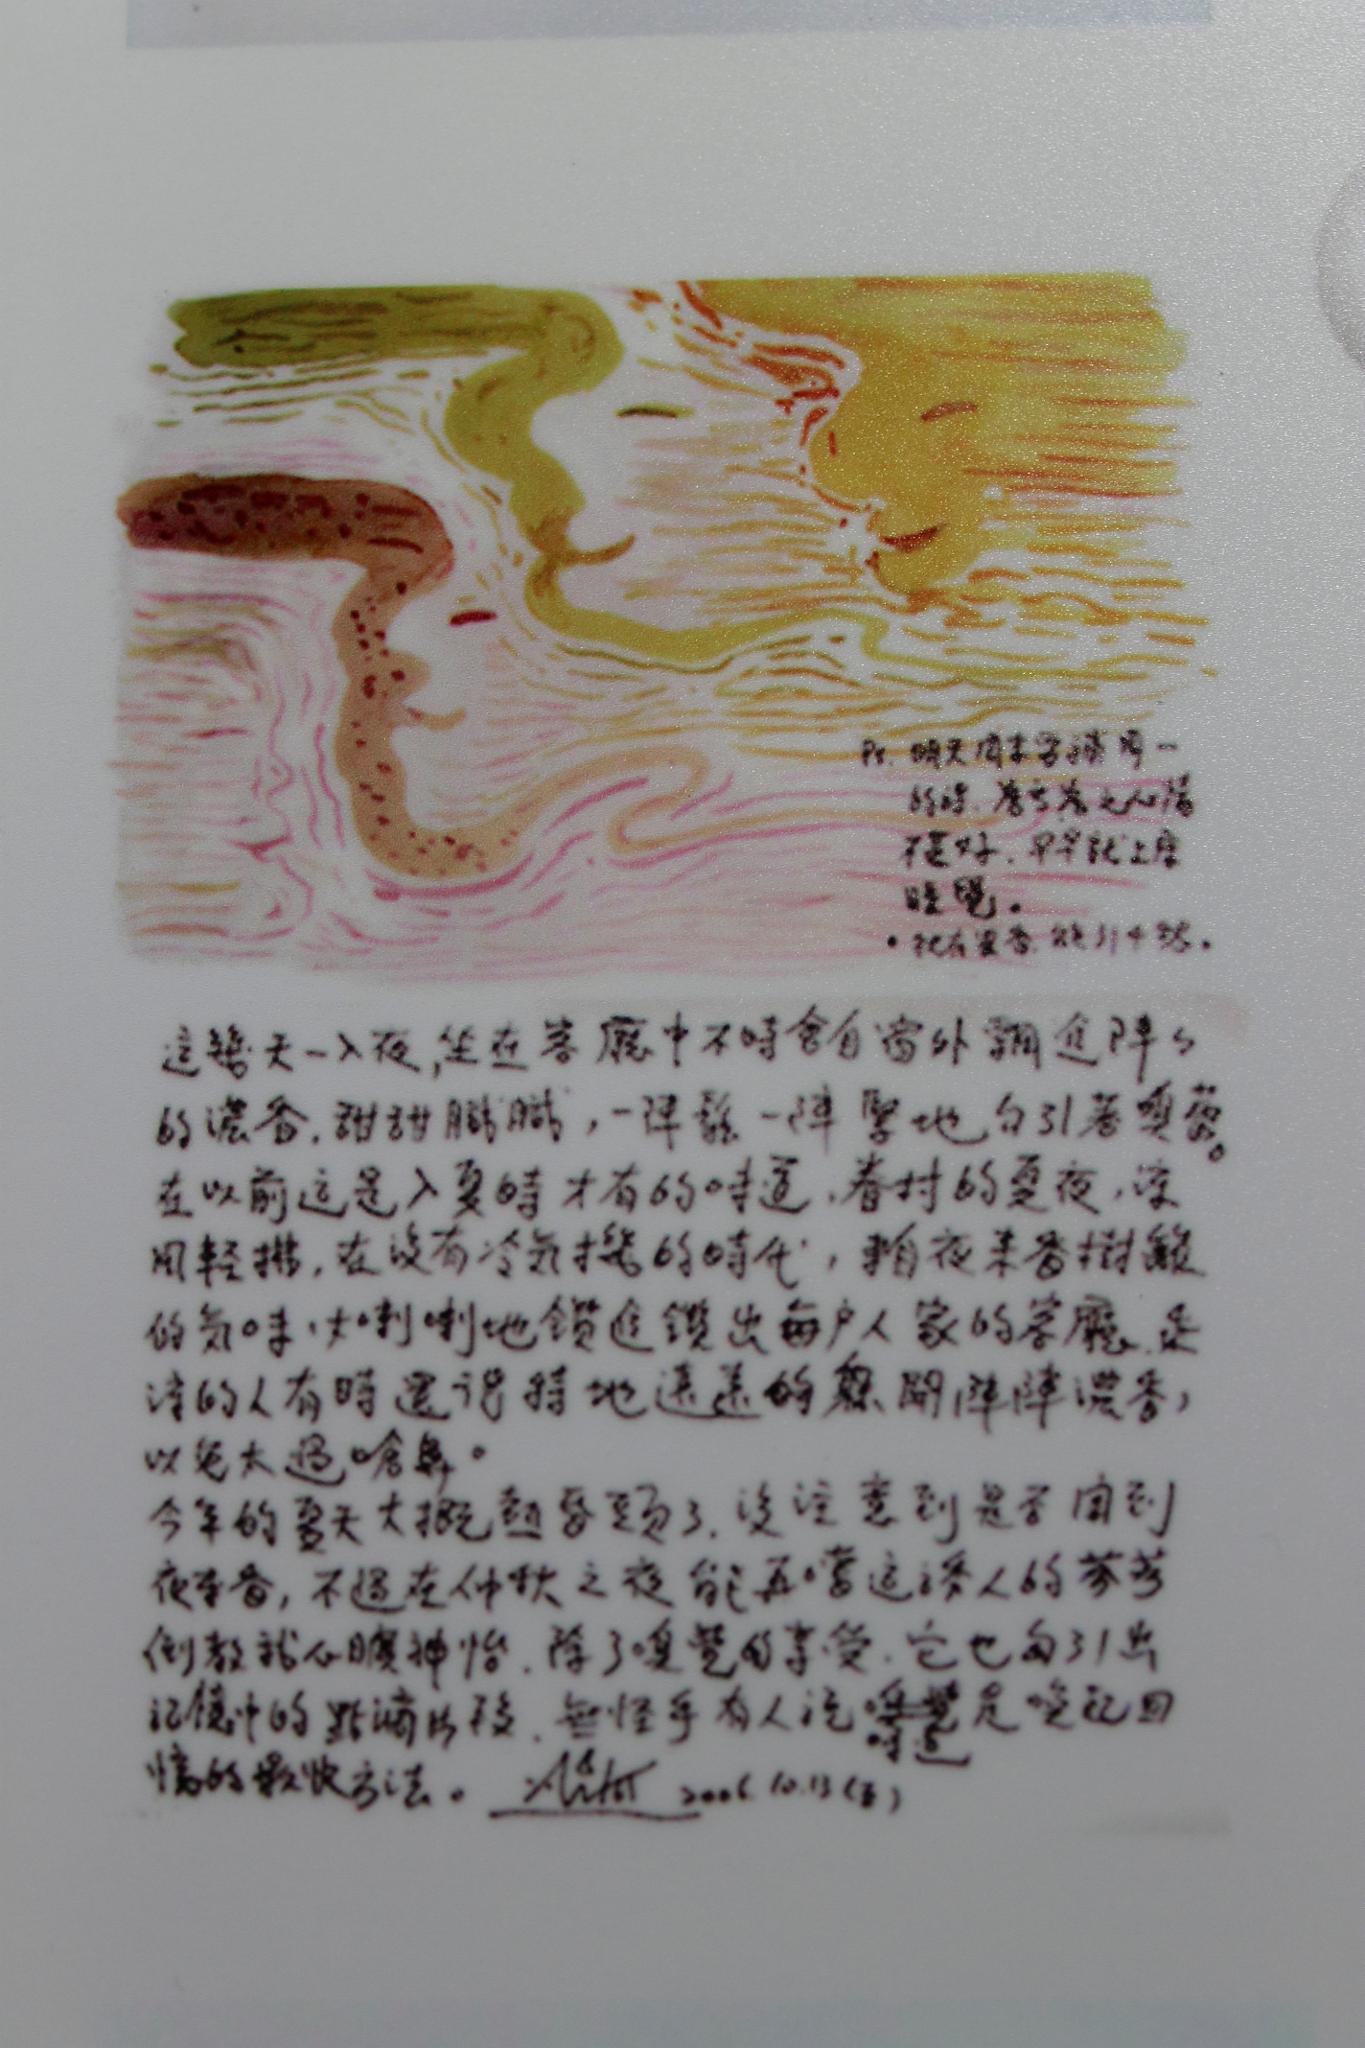 Ps. 明天周末需補周一
的課.
不是好.早早就上床
睡覺。
這幾天一入夜,坐在客廳中不時會自窗外飄進陣々
的濃香.甜甜膩膩,一陣鬆一陣緊地勾引著嗅蕾。
在以前這是入夏時才有的味道.眷村的夏夜.涼
風輕拂.在沒有冷氣機的時代,來自夜來香樹叢
的氣味.大喇喇地鑽進鑽出每戶人家的客廳.乘
涼的人有時還得特地遠遠的躲開陣陣濃香,
以免太過嗆鼻。
今年的夏天大概熱昏頭了.沒注意到是否聞到
夜來香,不過在仲秋之夜能再嚐這誘人的芬芳
倒教我心曠神怡.除了嗅覺的享受.它也勾引出
記憶中的點滴片段.無怪乎有人說味道是喚起回
憶的最快方法。 2006.10.13(五)